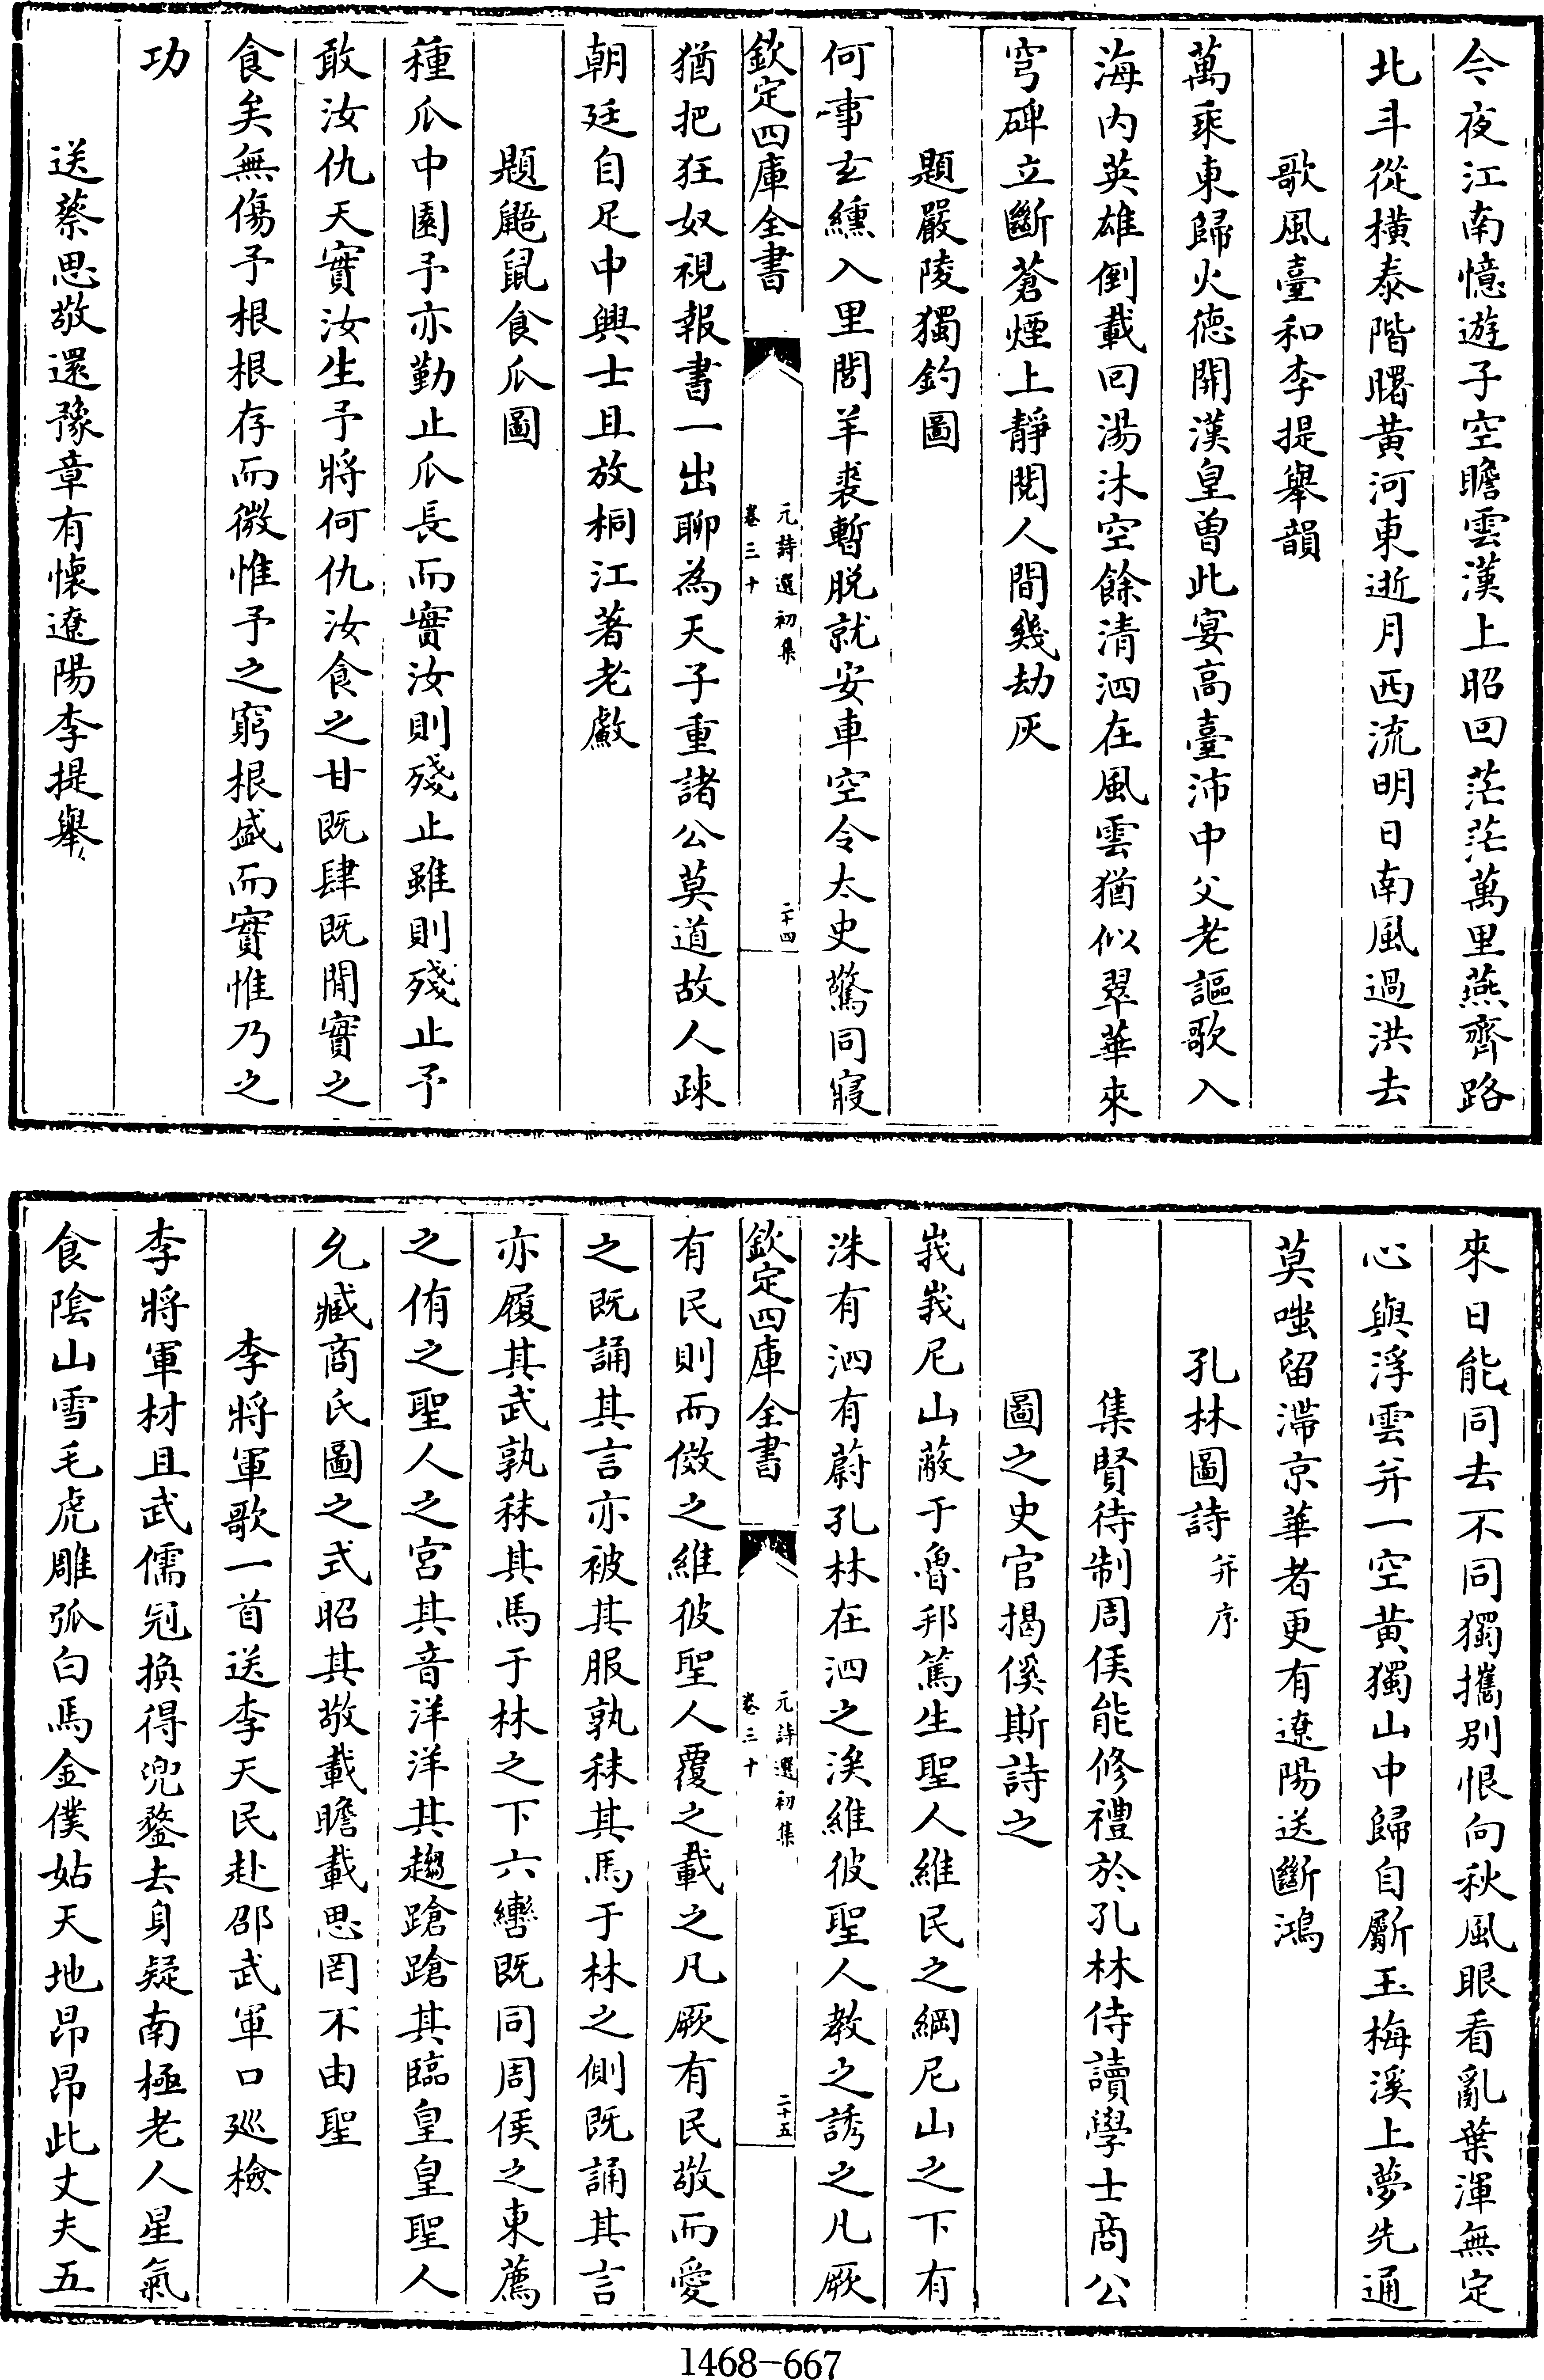 今夜江南憶遊子空瞻雲漢上昭回茫茫萬里燕齊路
北斗從横泰階曙黄河東逝月西流明日南風過洪去
歌風臺和李提舉韻
萬乘東歸火德開漢皇曽此宴高臺沛中父老謳歌入
海内英雄倒載回湯沐空餘清泗在風雲猶似翠華來
穹碑立斷蒼煙上靜閱人間幾劫灰
題嚴陵獨釣圖
何事玄纁入里閭羊裘暫脱就安車空令太史驚同寢
欽定四庫全書
元詩選初集
卷三十
二十四
猶把狂奴視報書一出聊為天子重諸公莫道故人疎
朝廷自足中興士且放桐江著老𢿙
題鼯鼠食瓜圖
種瓜中園予亦勤止瓜長而實汝則殘止雖則殘止予
敢汝仇天實汝生予將何仇汝食之甘既肆既閒實之
食矣無傷予根根存而微惟予之窮根盛而實惟乃之
功
送蔡思敬還豫章有懷遼陽李提舉
來日能同去不同獨攜别恨向秋風眼看亂葉渾無定
心與浮雲并一空黄獨山中歸自斸玉梅溪上夢先通
莫嗤留滯京華者更有遼陽送斷鴻
孔林圖詩并序
集賢待制周侯能修禮於孔林侍讀學士商公
圖之史官揭傒斯詩之
峩峩尼山蔽于魯邦篤生聖人維民之綱尼山之下有
洙有泗有蔚孔林在泗之涘維彼聖人教之誘之凡厥
欽定四庫全書
元詩選初集
卷三十
二十五
有民則而傚之維彼聖人覆之載之凡厥有民敬而愛
之既誦其言亦被其服孰秣其馬于林之側既誦其言
亦履其武孰秣其馬于林之下六轡既同周侯之東薦
之侑之聖人之宮其音洋洋其趨蹌蹌其臨皇皇聖人
允臧商氏圖之式昭其敬載瞻載思罔不由聖
李將軍歌一首送李天民赴邵武軍口廵檢
李將軍材且武儒冠換得兜鍪去身疑南極老人星氣
食陰山雪毛虎雕弧白馬金僕姑天地昂昂此丈夫五
1468-667